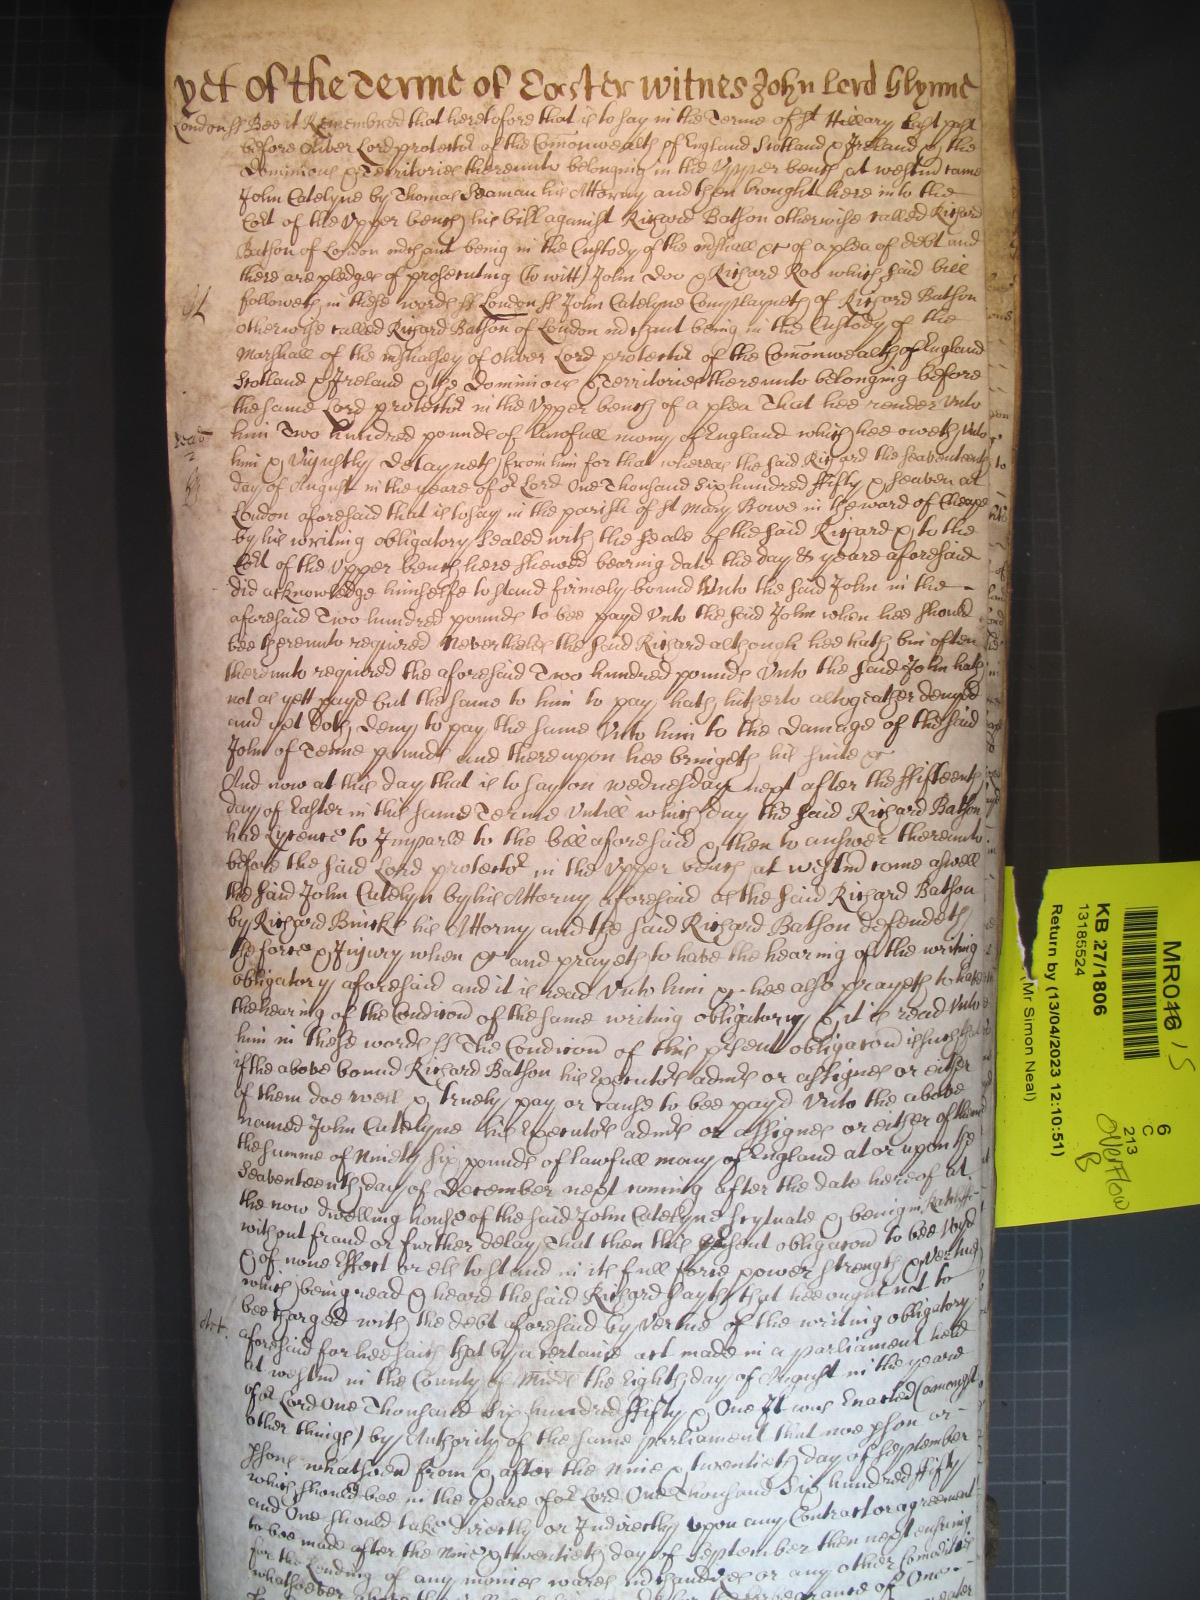 yet of the Terme of Easter witnes John Lord Glynne
London ss Bee it Remembred that heretofore that is to say in the Terme of St Hillary last past
before Oliver Lord protector of the Comonwealth of England Scotland & Ireland & the
Dominions & Territories thereunto belonging in the Upper bench at westm came
John Catelyne by Thomas Seaman his Attorny and then brought here into the
Cort of the Upper bench his bill against Richard Bathon otherwise called Richard
Bathon of London mchant being in the Custody of the mshall &c of a plea of debt and
there are pledges of prosecuting (to witt) John Doo & Richard Roo which said bill
followeth in these words ss London ss John Catelyne Complayneth of Richard Bathon
otherwise called Richard Bathon of London mchant being in the Custody of the
Marshall of the mshalsey of Oliver Lord protector of the Comonwealth of England
Scotland & Ireland & the Dominions & Territories thereunto belonging before
the same Lord protector in the Upper bench of a plea That hee render Unto
him Two hundred pounds of lawfull mony of England which hee oweth Unto
him & Uniustly Detayneth from him for that whereas the said Richard the seaventeenth
day of August in the yeare of or Lord One Thousand Six hundred ffifty & seaven at
London aforesaid that is to say in the parish of St Mary Bowe in the ward of Cheape
by his writing obligatory sealed with the seale of the said Richard & to the
Cort of the Upper bench here shewed bearing date the day & yeare aforesaid
did acknowledge himselfe to stand firmely bound Unto the said John in the
aforesaid Two hundred pounds to bee payd Unto the said John when hee should
bee thereunto required Neverthelesse the said Richard although hee hath bin often
thereunto required the aforesaid Two hundred pounds Unto the said John hath
not as yett payd but the same to him to pay hath hitherto altogeather denyed
and yet doth deny to pay the same Unto him to the Damage of the said
John of Tenne pounds and thereupon hee bringeth his suite &c
And now at this day that is to say on wednesday next after the ffifteenth
day of Easter in this same Terme Untill which day the said Richard Bathon
had Lycence to Imparle to the bill aforesaid & then to answer thereunto
before the said Lord protector in the Upper bench at westm come aswell
the said John Catelyn by his Attorny aforesaid as the said Richard Bathon
by Richard his Attorny and the said Richard Bathon defendeth
the force & Iniury when &c and prayeth to have the hearing of the writing
obligatory aforesaid and it is read Unto him &c hee also prayeth to have
the hearing of the Condicon of the same writing obligatory & it is read Unto
him in these words ss The Condicon of this psent obligacon is such that
if the above bound Richard Bathon his Executors adms or assignes or either
of them doe well & truely pay or cause to bee payd Unto the above
named John Catelyne his Executors adms or assignes or either of them
the summe of Ninety six pounds of lawfull mony of England at or upon the
Seaventeenth day of December next coming after the date hereof at
the now dwelling house of the said John Catelyne scytuate & being in
without fraud or further delay That then this psent obligacon to bee voyd
& of none Effect or els to stand in its full force power strength & Vertue
which being read & heard the said Richard sayth that hee ought not to
bee charged with the debt aforesaid by Vertue of the writing obligatory
aforesaid for hee saith that by a certaine act made in a parliament held
at westm in the County of Midd the Eighth day of August in the yeare
of or Lord One Thousand Six hundred ffifty & One It was Enacted (amongst
other things) by Authority of the same parliament that noe pson or
psons whatsoever from & after the Nine & twentieth day of September
which should bee in the yeare of or Lord One Thousand Six hundred ffifty
and One should take directly or Indirectly upon any Contract or agreement
to bee made after the Nine & twentieth day of September then next ensuing
for the Lending of any monies wares mchandizes or any other Comodities
whatsoever above the forbearance of One
MR046 / 5
6
C
213
KB 27/1806
13185524
overflow
B
Return by (13/04/2023 12:10:51)
(Mr Simon Neal)